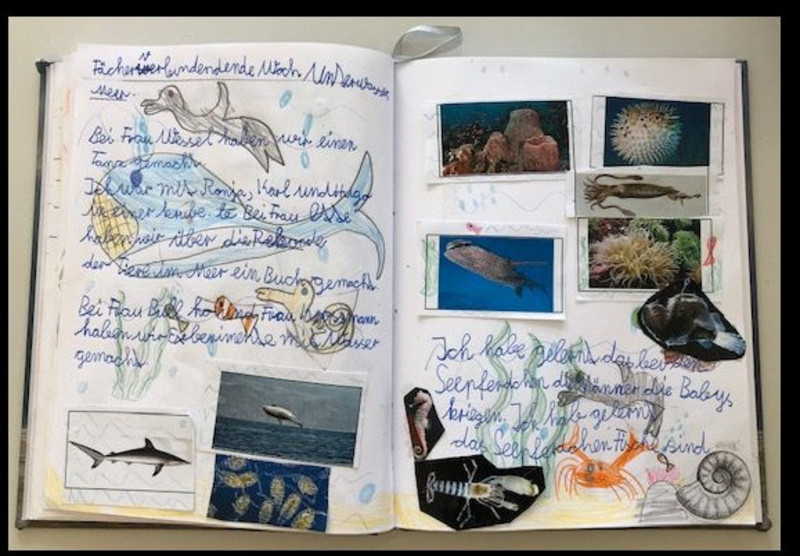 Fächerverbindendende Woch Underwasser
Meer.
Bei Frau Wessel haben wir einen
Tanz gemacht.
Ich war mit Ronja, Karl und Hugo
in einer te Bei Frau
haben wir über die Rekorde
der Tiere im Meer ein Buch gemacht.
Bei Frau und Frau
haben wir Exberimente mit Wasser
gemacht.
Ich habe gelernt das bei den
Seepferdchen die Männer die Babys
kriegen. Ich hab gelernt
das Seepferdchen Fische sind